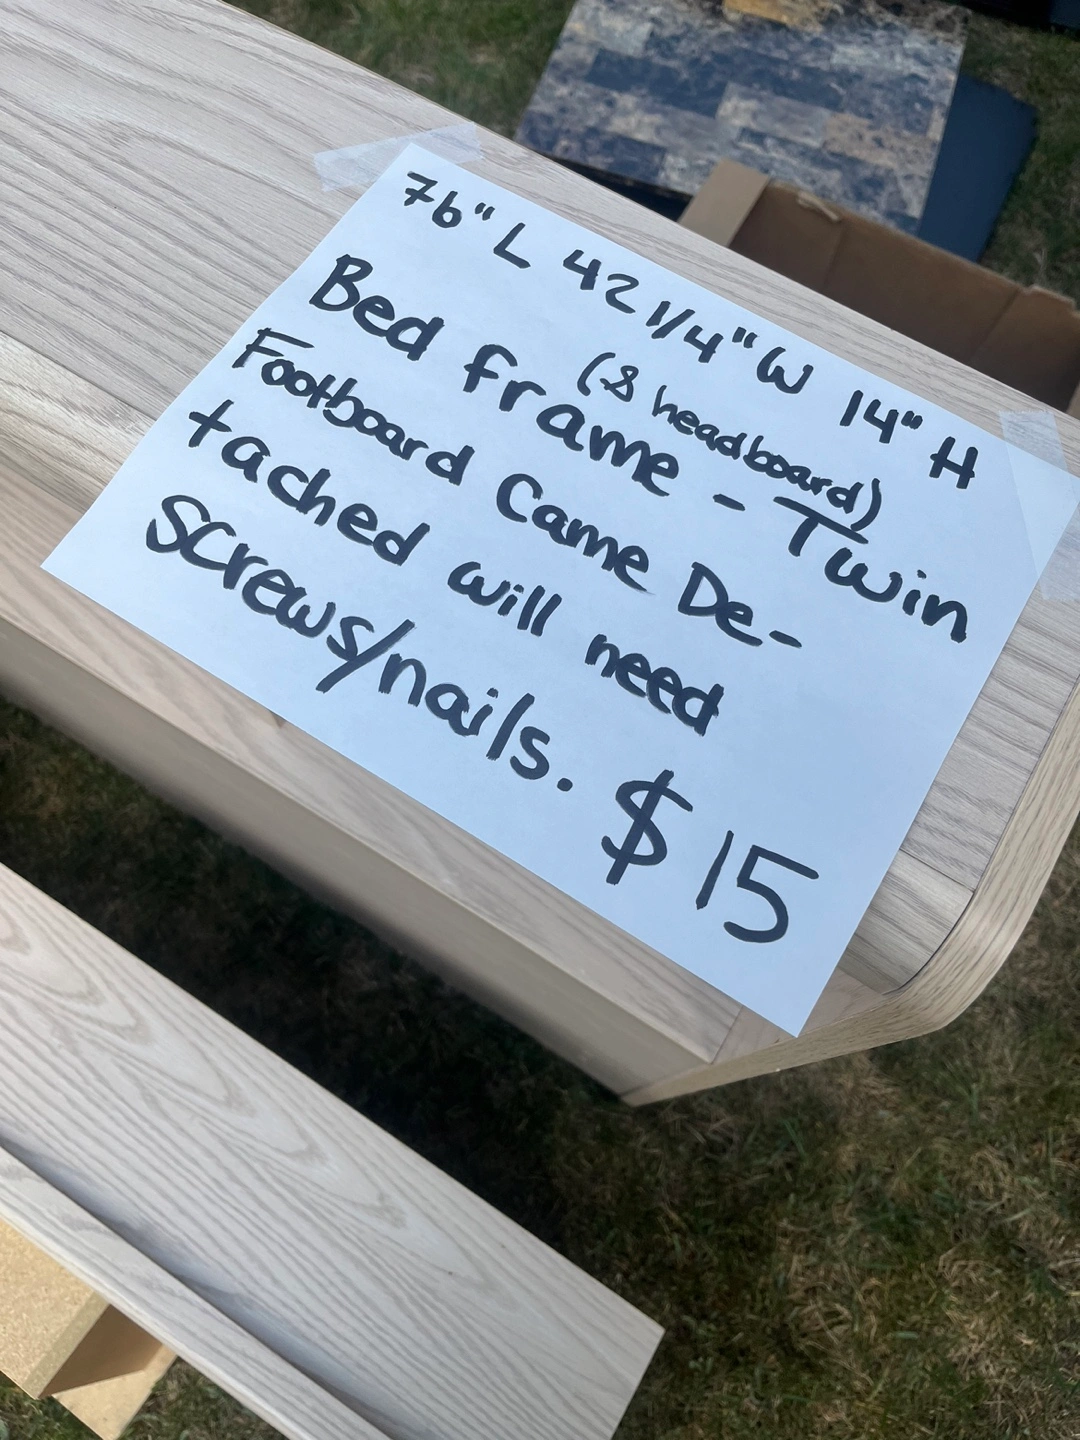 76" L 42 1/4" W 14" H
(& headboard)
Bed frame - Twin
Footboard Came De-
tached will need
screws/nails.
$15